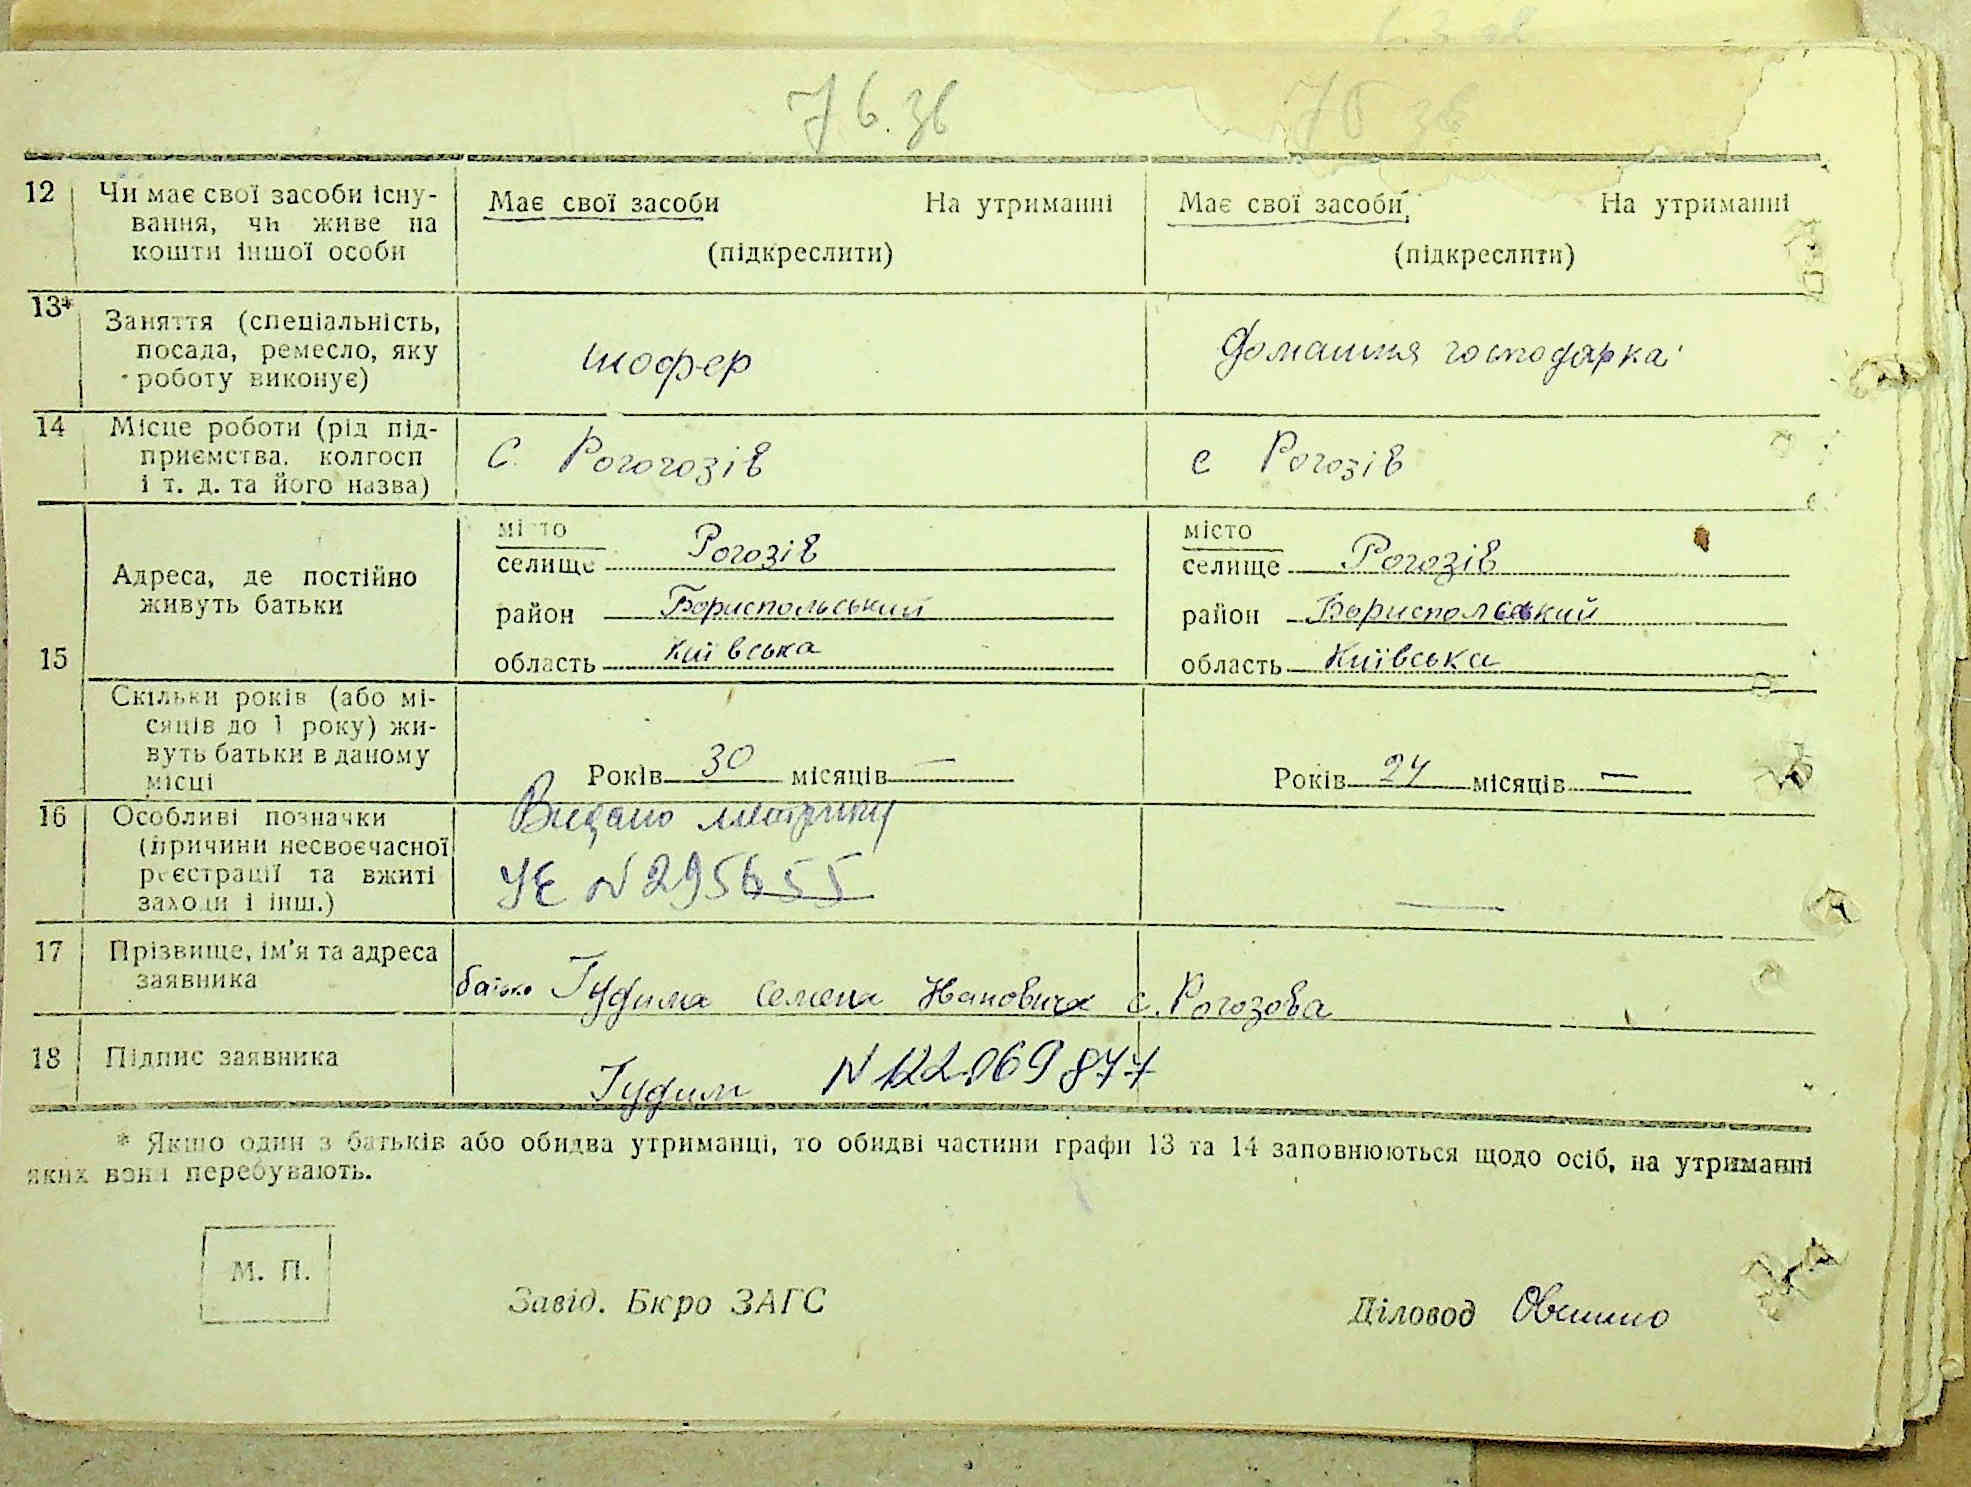 76 зв
76 зв
12 Чи має свої засоби існу-
вання, чи живе на
кошти іншої особи
Має свої засоби На утриманні
(підкреслити)
Має свої засоби На утриманні
(підкреслити)
13* Заняття (спеціальність,
посада, ремесло, яку
роботу виконує)
шофер
Домашня господарка
14 Місце роботи (рід під-
приємства, колгосп
і т. д. та його назва)
С. Рогогозів
с Рогозів
15
Адреса, де постійно
живуть батьки
місто
селище Рогозів
район Бориспольський
область Київська
місто
селище Рогозів
район Бориспольський
область Київська
Скільки років (або мі-
сяців до 1 року) жи-
вуть батьки в даному
місці
Років 30 місяців —
Років 24 місяців —
16 Особливі позначки
(причини несвоєчасної
реєстрації та вжиті
заходи і інш.)
Видано метрику
УЕ N 295655
—
17 Прізвище, ім'я та адреса
заявника
батько Гудима Семена Ивановича с. Рогозова
18 Підпис заявника
Гудим N 122069877
* Якщо один з батьків або обидва утриманці, то обидві частини графи 13 та 14 заповнюються щодо осіб, на утриманні
яких вони перебувають.
М. П.
Завід. Бюро ЗАГС
Діловод